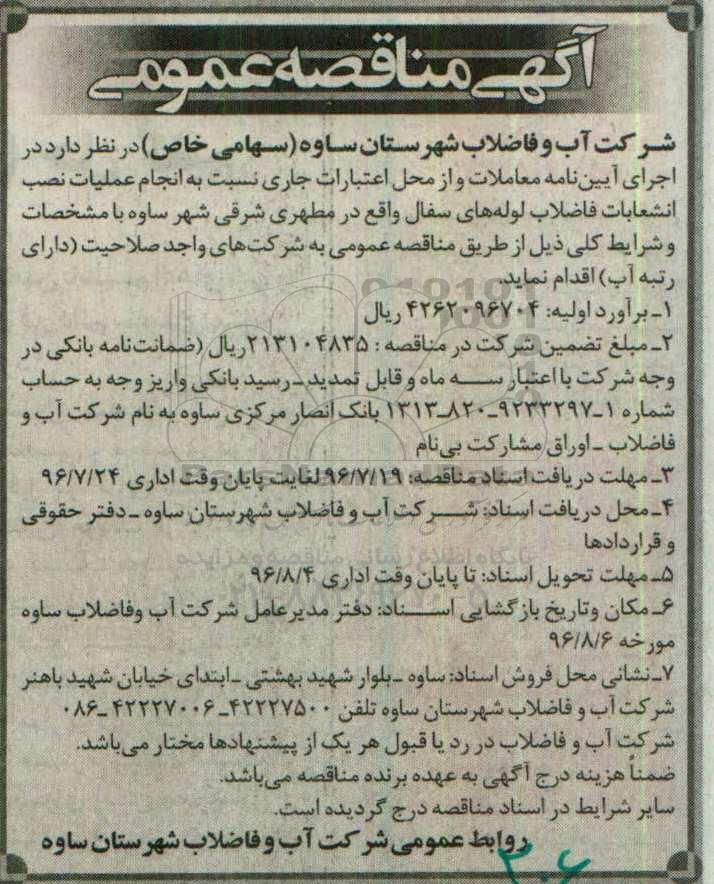 آگهی مناقصه عمومی
شرکت آب و فاضلاب شهرستان ساوه (سهامی خاص) در نظر دارد در
اجرای آیین‌نامه معاملات و از محل اعتبارات جاری نسبت به انجام عملیات نصب
انشعابات فاضلاب لوله‌های سفال واقع در مطهری شرقی شهر ساوه با مشخصات
و شرایط کلی ذیل از طریق مناقصه عمومی به شرکت‌های واجد صلاحیت (دارای
رتبه آب) اقدام نماید.
۱ـ برآورد اولیه: ۴۲۶۲۰۹۶۷۰۴ ریال
۲ـ مبلغ تضمین شرکت در مناقصه: ۲۱۳۱۰۴۸۳۵ ریال (ضمانت‌نامه بانکی در
وجه شرکت با اعتبار سه ماه و قابل تمدید ـ رسید بانکی واریز وجه به حساب
شماره ۱ـ۹۲۳۳۲۹۷ـ۸۲۰ـ۱۳۱۳ بانک انصار مرکزی ساوه به نام شرکت آب و
فاضلاب ـ اوراق مشارکت بی‌نام
۳ـ مهلت دریافت اسناد مناقصه: ۹۶/۷/۱۹ لغایت پایان وقت اداری ۹۶/۷/۲۴
۴ـ محل دریافت اسناد: شرکت آب و فاضلاب شهرستان ساوه ـ دفتر حقوقی
و قراردادها
۵ـ مهلت تحویل اسناد: تا پایان وقت اداری ۹۶/۸/۴
۶ـ مکان وتاریخ بازگشایی اسناد: دفتر مدیرعامل شرکت آب وفاضلاب ساوه
مورخه ۹۶/۸/۶
۷ـ نشانی محل فروش اسناد: ساوه ـ بلوار شهید بهشتی ـ ابتدای خیابان شهید باهنر
شرکت آب و فاضلاب شهرستان ساوه تلفن ۴۲۲۲۷۵۰۰ـ ۴۲۲۲۷۰۰۶ ـ۰۸۶
شرکت آب و فاضلاب در رد یا قبول هر یک از پیشنهادها مختار می‌باشد.
ضمناً هزینه درج آگهی به عهده برنده مناقصه می‌باشد.
سایر شرایط در اسناد مناقصه درج گردیده است.
روابط عمومی شرکت آب و فاضلاب شهرستان ساوه